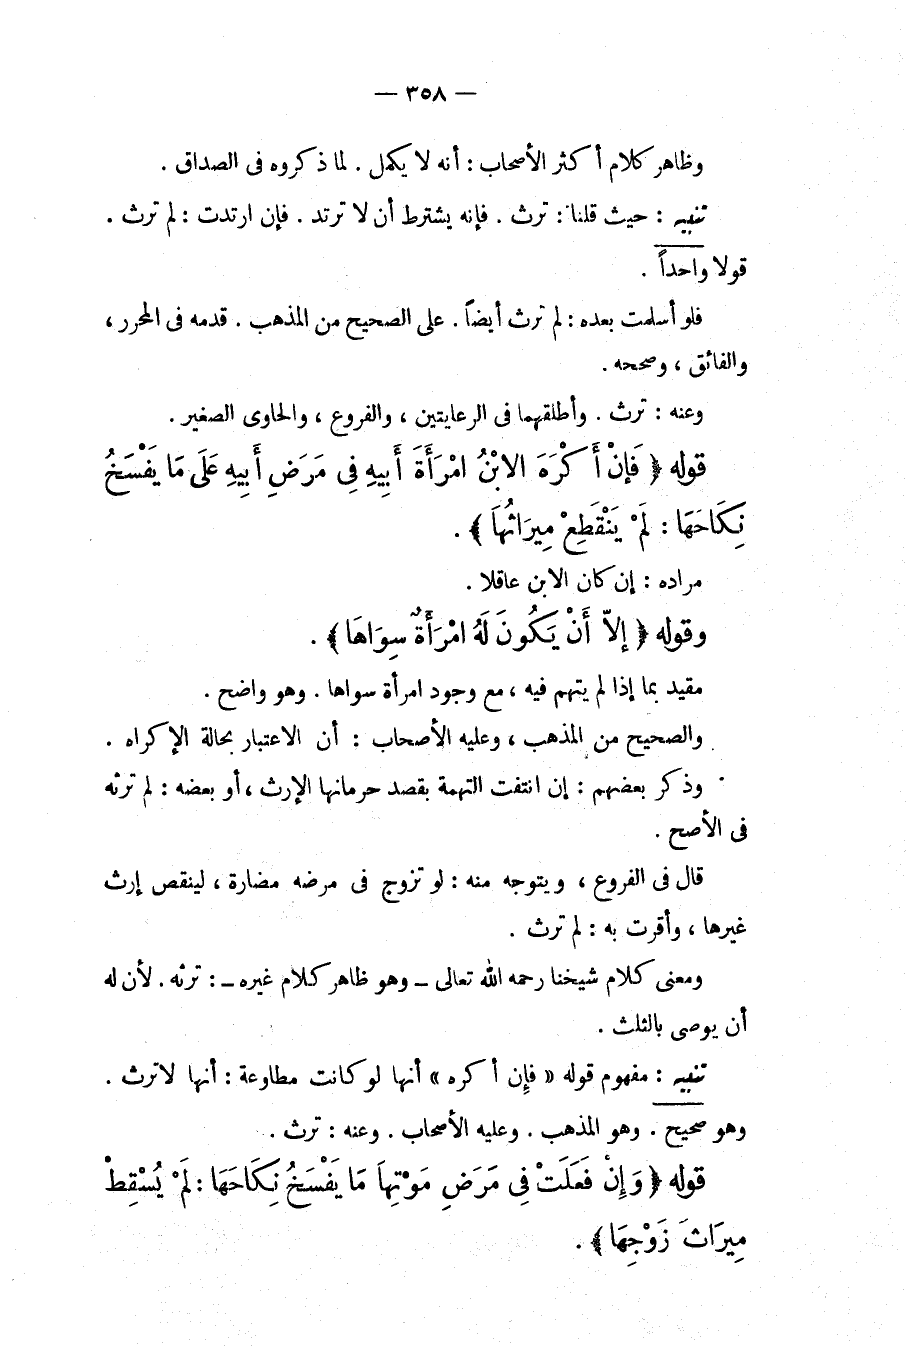 — ٣٥٨ —
وظاهر كلام أكثر الأصحاب : أنه لا يكمل . لما ذكروه فى الصداق .
تنبيه : حيث قلنا : ترث . فإنه يشترط أن لا ترتد . فإن ارتدت : لم ترث .
قولا واحداً .
فلو أسلمت بعده : لم ترث أيضاً . على الصحيح من المذهب . قدمه فى المحرر ،
والفائق ، وصححه .
وعنه : ترث . وأطلقهما فى الرعايتين ، والفروع ، والحاوى الصغير .
قوله ﴿ فَإِنْ أَكْرَهَ الابْنُ امْرَأَةَ أَبِيهِ فِى مَرَضِ أَبِيهِ عَلَى مَا يَفْسَخُ
نِكَاحَهَا : لَمْ يَنْقَطِعْ مِيرَاثُهَا ﴾ .
مراده : إن كان الابن عاقلا .
وقوله ﴿ إِلاَّ أَنْ يَكُونَ لَهُ امْرَأَةٌ سِوَاهَا ﴾ .
مقيد بما إذا لم يتهم فيه ، مع وجود امرأة سواها . وهو واضح .
والصحيح من المذهب ، وعليه الأصحاب : أن الاعتبار بحالة الإكراه .
وذكر بعضهم : إن انتفت التهمة بقصد حرمانها الإرث ، أو بعضه : لم ترثه
فى الأصح .
قال فى الفروع ، ويتوجه منه : لو تزوج فى مرضه مضارة ، لينقص إرث
غيرها ، وأقرت به : لم ترث .
ومعنى كلام شيخنا رحمه الله تعالى ــ وهو ظاهر كلام غيره ــ : ترثه . لأن له
أن يوصى بالثلث .
تنبيه : مفهوم قوله « فإن أكره » أنها لو كانت مطاوعة : أنها لا ترث .
وهو صحيح . وهو المذهب . وعليه الأصحاب . وعنه : ترث .
قوله ﴿ وَإِنْ فَعَلَتْ فِى مَرَضِ مَوْتِهَا مَا يَفْسَخُ نِكَاحَهَا : لَمْ يُسْقِطْ
مِيرَاثَ زَوْجِهَا ﴾ .